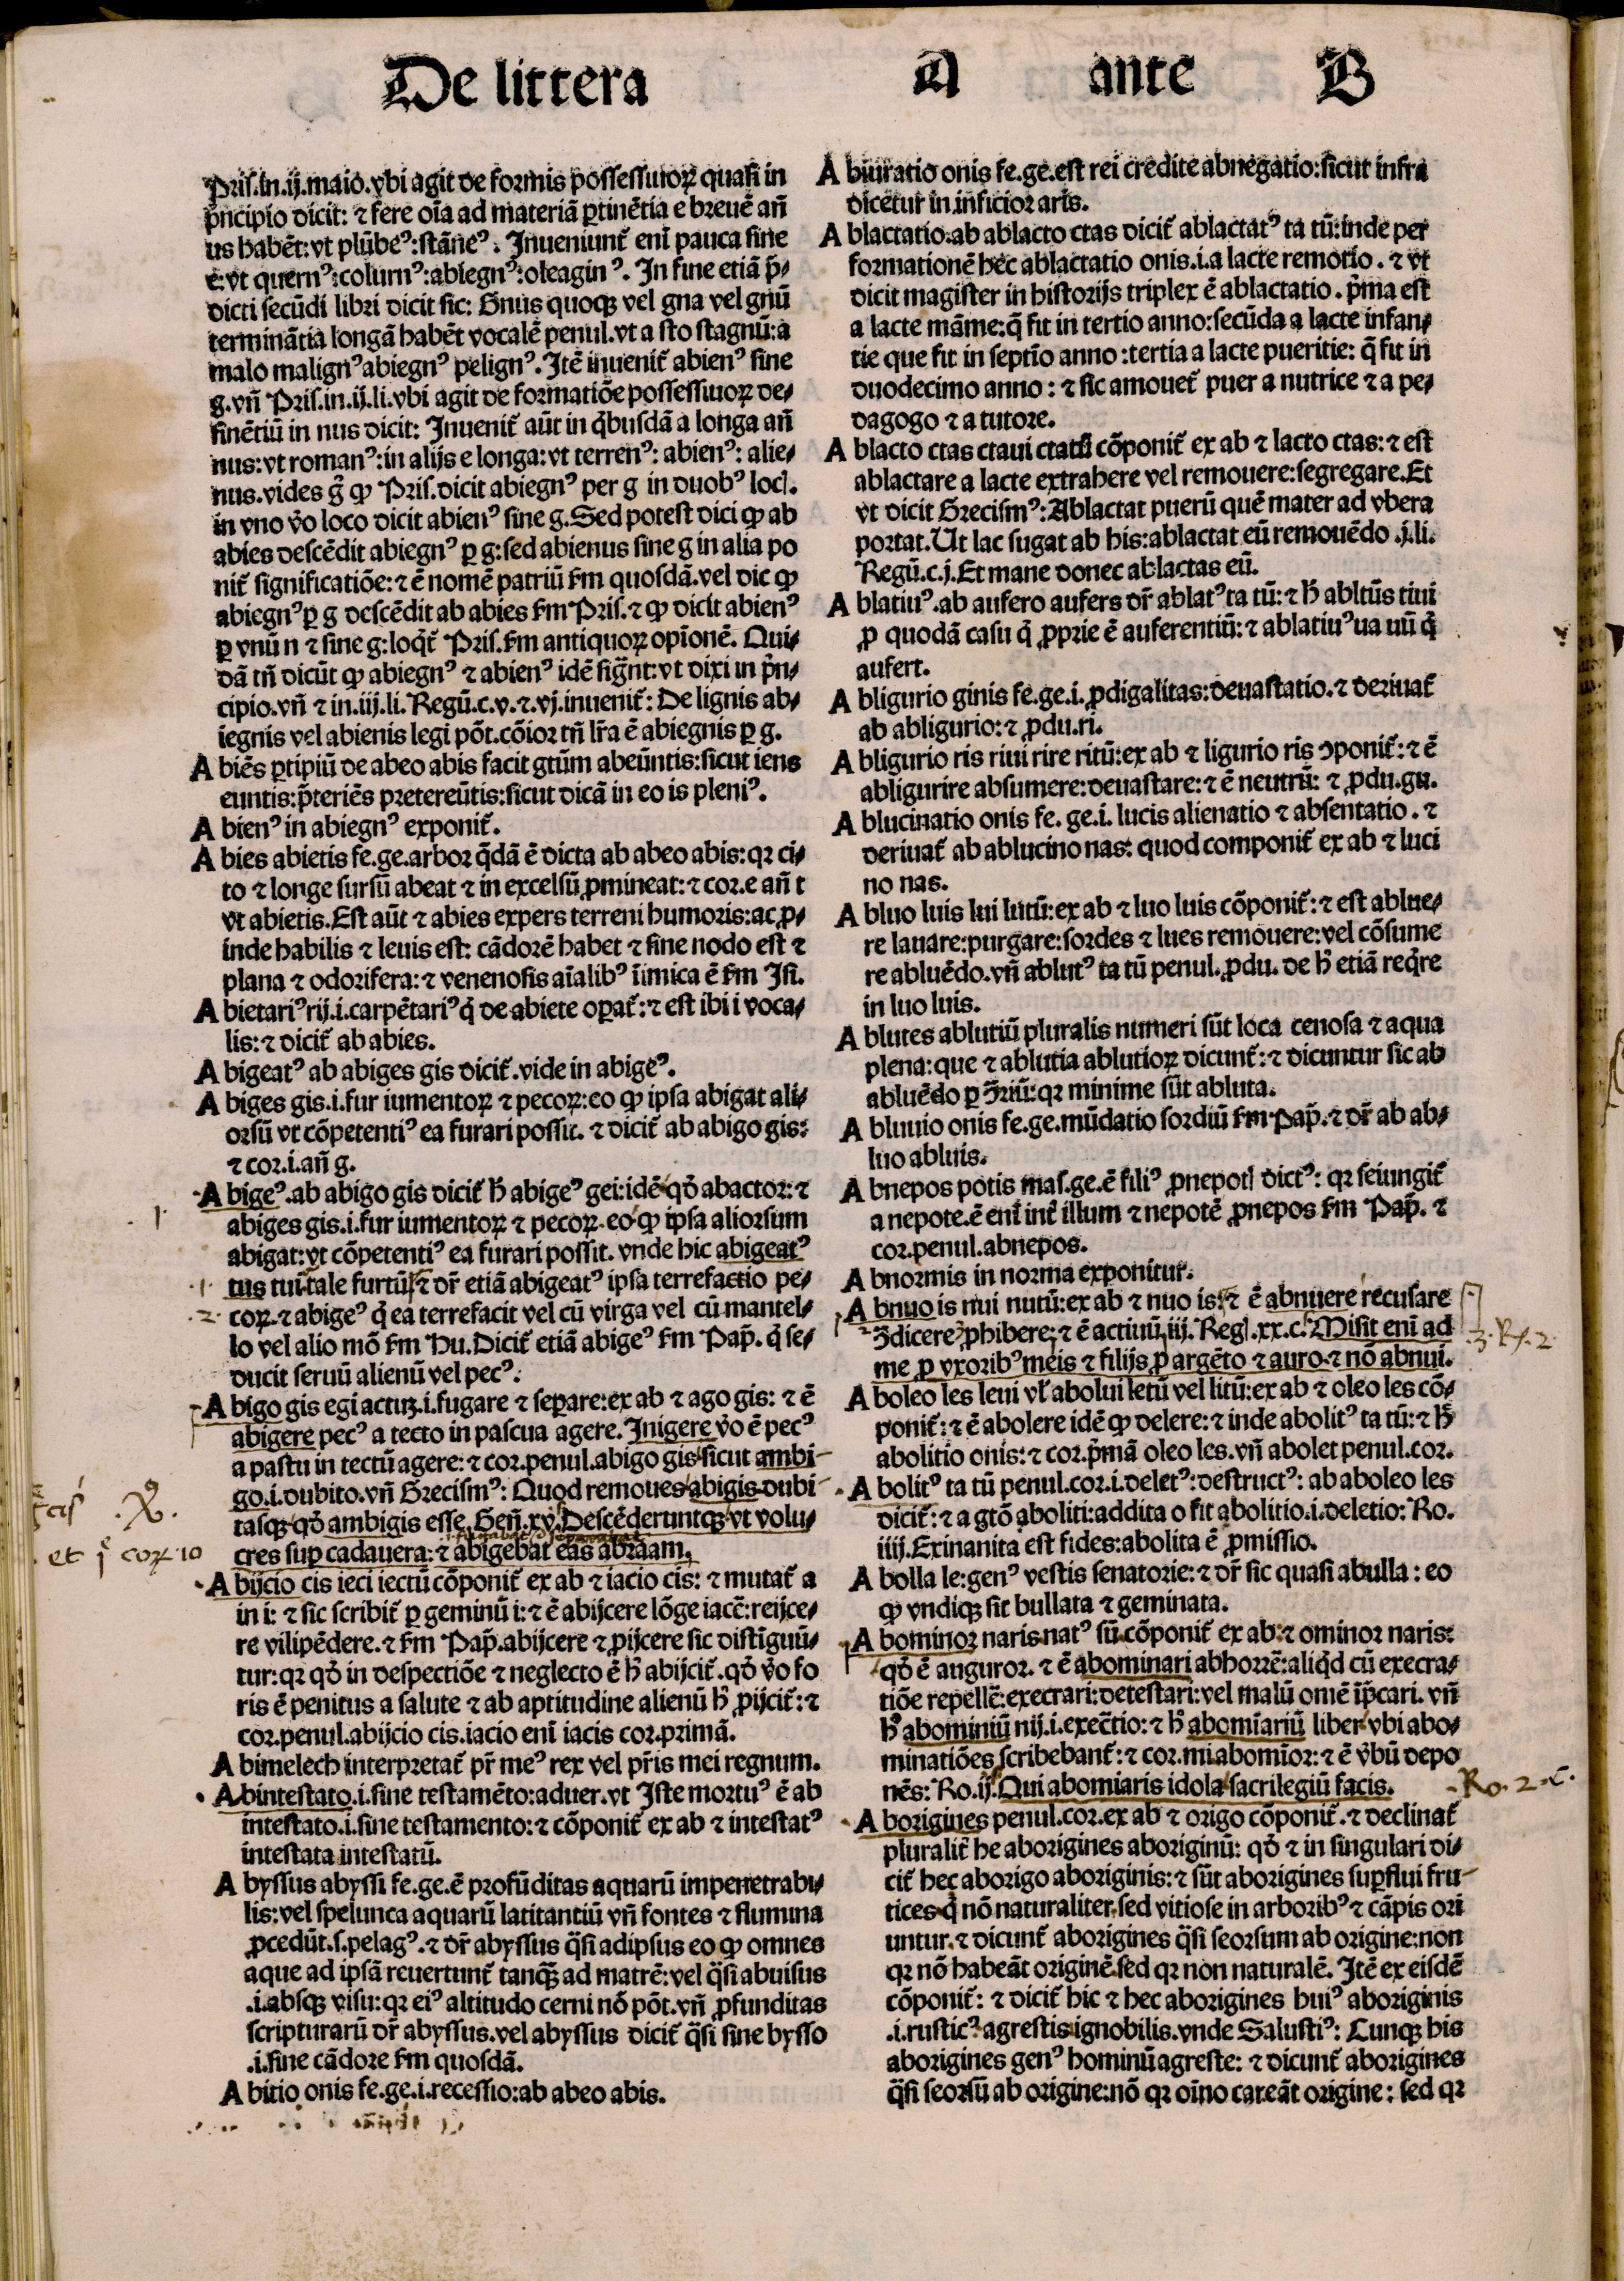 De littera A ante B
Pris.in.ij.maio.vbi agit de formis possessiuoꝝ quasi in
pͥncipio dicit: ⁊ fere oĩa ad materiã ꝑtinẽtia e breuẽ an̄
us habẽt: vt plũbeꝰ:stãneꝰ. Inueniunt̃ eni̅ pauca sine
e: vt quernꝰ:colurnꝰ:abiegnꝰ:oleaginꝰ. In fine etiã p̃⸗
dicti secũdi libri dicit sic: Gnus quoqꝫ vel gna vel gnũ
terminãtia longã habẽt vocalẽ penul.vt a sto stagnũ:a
malo malignꝰ abiegnꝰ pelignꝰ. Itẽ inuenit̃ abienꝰ sine
g.vn̄ Pris.in.ij.li.vbi agit de formatiõe possessiuoꝝ de⸗
sinẽtiũ in nus dicit: Inuenit̃ aũt in qͥbusdã a longa an̄
nus: vt romanꝰ:in alijs e longa: vt terrenꝰ: abienꝰ: alie⸗
nus.vides g̃ ꝙ Pris.dicit abiegnꝰ per g in duobꝰ locꝭ.
in vno v̊o loco dicit abienꝰ sine g. Sed potest dici ꝙ ab
abies descẽdit abiegnꝰ ꝑ g: sed abienus sine g in alia po
nit̃ significatiõe: ⁊ ẽ nomẽ patriũ ẜm quosdã.vel dic ꝙ
abiegnꝰ ꝑ g descẽdit ab abies ẜm Pris.⁊ ꝙ dicit abienꝰ
ꝑ vnũ n ⁊ sine g: loqͥt̃ Pris.ẜm antiquoꝝ opionẽ. Qui⸗
dã tn̄ dicũt ꝙ abiegnꝰ ⁊ abienꝰ idẽ sig̃nt: vt dixi in pͥn⸗
cipio.vn̄ ⁊ in.iij.li.Regũ.c.v.⁊.vj.inuenit̃: De lignis ab⸗
iegnis vel abienis legi põt.cõior tn̄ lr̃a ẽ abiegnis ꝑ g.
A biẽs ꝑtipiũ de abeo abis facit gtũm abeũntis: sicut iens
euntis: p̃teriẽs pretereũtis: sicut dicã in eo is pleniꝰ.
A bienꝰ in abiegnꝰ exponit̃.
A bies abietis fe.ge.arbor q̃dã ẽ dicta ab abeo abis: qꝛ ci⸗
to ⁊ longe sursũ abeat ⁊ in excelsũ ꝓmineat: ⁊ cor.e an̄ t
vt abietis. Est aũt ⁊ abies expers terreni humoris: ac ꝓ⸗
inde habilis ⁊ leuis est: cãdorẽ habet ⁊ sine nodo est ⁊
plana ⁊ odorifera: ⁊ venenosis aĩalibꝰ ĩimica ẽ ẜm Isi.
A bietariꝰ rij.i.carpẽtariꝰ qͥ de abiete oꝑat̃: ⁊ est ibi i voca⸗
lis: ⁊ dicit̃ ab abies.
A bigeatꝰ ab abiges gis dicit̃.vide in abigeꝰ.
A biges gis.i.fur iumentoꝝ ⁊ pecoꝝ: eo ꝙ ipsa abigat ali⸗
orsũ vt cõpetentiꝰ ea furari possit. ⁊ dicit̃ ab abigo gis:
⁊ cor.i.an̄ g.
A bigeꝰ.ab abigo gis dicit̃ h̃ abigeꝰ gei: idẽ qd̊ abactor: ⁊
abiges gis.i.fur iumentoꝝ ⁊ pecoꝝ. eo ꝙ ipsa aliorsum
abigat: vt cõpetentiꝰ ea furari possit. vnde hic abigeatꝰ
·1· tus tui tale furtũ. ⁊ dr̃ etiã abigeatꝰ ipsa terrefactio pe⸗
·2· coꝝ.⁊ abigeꝰ qͥ ea terrefacit vel cũ virga vel cũ mantel⸗
lo vel alio mõ ẜm Hu. Dicit̃ etiã abigeꝰ ẜm Pap̃. qͥ se⸗
ducit seruũ alienũ vel pecꝰ.
A bigo gis egi actuꝫ.i.fugare ⁊ seꝑare: ex ab ⁊ ago gis: ⁊ ẽ
abigere pecꝰ a tecto in pascua agere. Inigere v̊o ẽ pecꝰ
a pastu in tectũ agere: ⁊ cor.penul.abigo gis sicut ambi⸗
go.i.dubito.vn̄ Grecismꝰ: Quod remoues abigis dubi⸗
tasqꝫ qd̊ ambigis esse. Gen̄.xv. Descẽderuntqꝫ vt volu⸗
et cor 10 cres suꝑ cadauera: ⁊ abigebat eas abraam.
A bijcio cis ieci iectũ cõponit̃ ex ab ⁊ iacio cis: ⁊ mutat̃ a
in i: ⁊ sic scribit̃ ꝑ geminũ i: ⁊ ẽ abijcere lõge iacẽ: reijce⸗
re vilipẽdere.⁊ ẜm Pap̃.abijcere ⁊ ꝓijcere sic distĩguũ⸗
tur: qꝛ qd̊ in despectiõe ⁊ neglecto ẽ h̊ abijcit̃.qd̊ v̊o fo
ris ẽ penitus a salute ⁊ ab aptitudine alienũ h̊ ꝓijcit̃: ⁊
cor.penul.abijcio cis.iacio eni̅ iacis cor.primã.
A bimelech interpretat̃ pr̃ meꝰ rex vel pr̃is mei regnum.
A bintestato.i.sine testamẽto: aduer.vt Iste mortuꝰ ẽ ab
intestato.i.sine testamento: ⁊ cõponit̃ ex ab ⁊ intestatꝰ
intestata intestatũ.
A byssus abyssi fe.ge.ẽ profũditas aquarũ impenetrabi⸗
lis: vel spelunca aquarũ latitantiũ vn̄ fontes ⁊ flumina
ꝓcedũt.s.pelagꝰ.⁊ dr̃ abyssus q̃si adipsus eo ꝙ omnes
aque ad ipsã reuertunt̃ tanqꝫ ad matrẽ: vel q̃si abuisus
.i.absqꝫ visu: qꝛ eiꝰ altitudo cerni nõ põt.vn̄ ꝓfunditas
scripturarũ dr̃ abyssus.vel abyssus dicit̃ q̃si sine bysso
.i.sine cãdore ẜm quosdã.
A bitio onis fe.ge.i.recessio: ab abeo abis.
A biuratio onis fe.ge.est rei credite abnegatio: sicut infra
dicetur in inficior aris.
A blactatio.ab ablacto ctas dicit̃ ablactatꝰ ta tũ: inde per
formationẽ hec ablactatio onis.i.a lacte remotio. ⁊ vt
dicit magister in historijs triplex ẽ ablactatio. pͥma est
a lacte mãme: q̃ fit in tertio anno: secũda a lacte infan⸗
tie que fit in septĩo anno: tertia a lacte pueritie: q̃ fit in
duodecimo anno: ⁊ sic amouet̃ puer a nutrice ⁊ a pe⸗
dagogo ⁊ a tutore.
A blacto ctas ctaui ctatũ cõponit̃ ex ab ⁊ lacto ctas: ⁊ est
ablactare a lacte extrahere vel remouere: segregare. Et
vt dicit Grecismꝰ: Ablactat puerũ quẽ mater ad vbera
portat. Ut lac sugat ab his: ablactat eũ remouẽdo .j.li.
Regũ.c.j. Et mane donec ablactas eũ.
A blatiuꝰ.ab aufero aufers dr̃ ablatꝰ ta tũ: ⁊ h̃ abltũs tiui
ꝓ quodã casu qͥ ꝓprie ẽ auferentiũ: ⁊ ablatiuꝰ ua uũ qͥ
aufert.
A bligurio ginis fe.ge.i.ꝓdigalitas: deuastatio.⁊ deriuat̃
ab abligurio: ⁊ ꝓdu.ri.
A bligurio ris riui rire ritũ: ex ab ⁊ ligurio ris ↄponit̃: ⁊ ẽ
abligurire absumere: deuastare: ⁊ ẽ neutrũ: ⁊ ꝓdu.gu.
A blucinatio onis fe. ge.i. lucis alienatio ⁊ absentatio. ⁊
deriuat̃ ab ablucino nas: quod componit̃ ex ab ⁊ luci
no nas.
A bluo luis lui lutũ: ex ab ⁊ luo luis cõponit̃: ⁊ est ablue⸗
re lauare: purgare: sordes ⁊ lues remouere: vel cõsume
re abluẽdo.vn̄ ablutꝰ ta tũ penul.ꝓdu. de h̊ etiã reqͥre
in luo luis.
A blutes ablutiũ pluralis numeri sũt loca cenosa ⁊ aqua
plena: que ⁊ ablutia ablutioꝝ dicunt̃: ⁊ dicuntur sic ab
abluẽdo ꝑ ↄ̃riũ: qꝛ minime sũt abluta.
A bluuio onis fe.ge.mũdatio sordiũ ẜm Pap̃.⁊ dr̃ ab ab⸗
luo abluis.
A bnepos potis mas.ge.ẽ filiꝰ ꝓnepotꝭ dictꝰ: qꝛ seiungit̃
a nepote.ẽ eni̅ int̃ illum ⁊ nepotẽ ꝓnepos ẜm Pap̃. ⁊
cor.penul.abnepos.
A bnormis in norma exponitur.
A bnuo is nui nutũ: ex ab ⁊ nuo is: ⁊ ẽ abnuere recusare
ↄ̃dicere ꝓhibere: ⁊ ẽ actiuũ. iij. Regꝭ.xx.c. Misit eni̅ ad 3. R. 2
me ꝑ vxoribꝰ meis ⁊ filijs ꝓ argẽto ⁊ auro ⁊ nõ abnui.
A boleo les leui vl̃ abolui letũ vel litũ: ex ab ⁊ oleo les cõ⸗
ponit̃: ⁊ ẽ abolere idẽ ꝙ delere: ⁊ inde abolitꝰ ta tũ: ⁊ h̃
abolitio onis: ⁊ cor.pͥmã oleo les.vn̄ abolet penul.cor.
A bolitꝰ ta tũ penul.cor.i.deletꝰ: destructꝰ: ab aboleo les
dicit̃: ⁊ a gtõ aboliti: addita o fit abolitio.i.deletio: Ro.
iiij. Exinanita est fides: abolita ẽ ꝓmissio.
A bolla le: genꝰ vestis senatorie: ⁊ dr̃ sic quasi abulla: eo
ꝙ vndiqꝫ sit bullata ⁊ geminata.
A bominor naris natꝰ sũ cõponit̃ ex ab ⁊ ominor naris:
qd̊ ẽ auguror. ⁊ ẽ abominari abhorrẽ: aliqͥd cũ execra⸗
tiõe repellẽ: execrari: detestari: vel malũ omẽ ip̃cari. vn̄
h̊ abominiũ nij.i.exec̃tio: ⁊ h̊ abomĩariũ liber vbi abo⸗
minatiões scribebant̃: ⁊ cor.mi abomĩor: ⁊ ẽ v̊bũ depo
nẽs: Ro.ij. Qui abomiaris idola sacrilegiũ facis. Ro. 2. c.
A borigines penul.cor.ex ab ⁊ origo cõponit̃.⁊ declinat̃
pluralit̃ he aborigines aboriginũ: qd̊ ⁊ in singulari di⸗
cit̃ hec aborigo aboriginis: ⁊ sũt aborigines suꝑflui fru⸗
tices qͥ nõ naturaliter sed vitiose in arboribꝰ ⁊ cãpis ori
untur.⁊ dicunt̃ aborigines q̃si seorsum ab origine: non
qꝛ nõ habeãt originẽ sed qꝛ non naturalẽ. Itẽ ex eisdẽ
cõponit̃: ⁊ dicit̃ hic ⁊ hec aborigines huiꝰ aboriginis
.i.rusticꝰ agrestis ignobilis.vnde Salustiꝰ: Cunqꝫ his
aborigines genꝰ hominũ agreste: ⁊ dicunt̃ aborigines
q̃si seorsũ ab origine: nõ qꝛ oĩno careãt origine: sed qꝛ